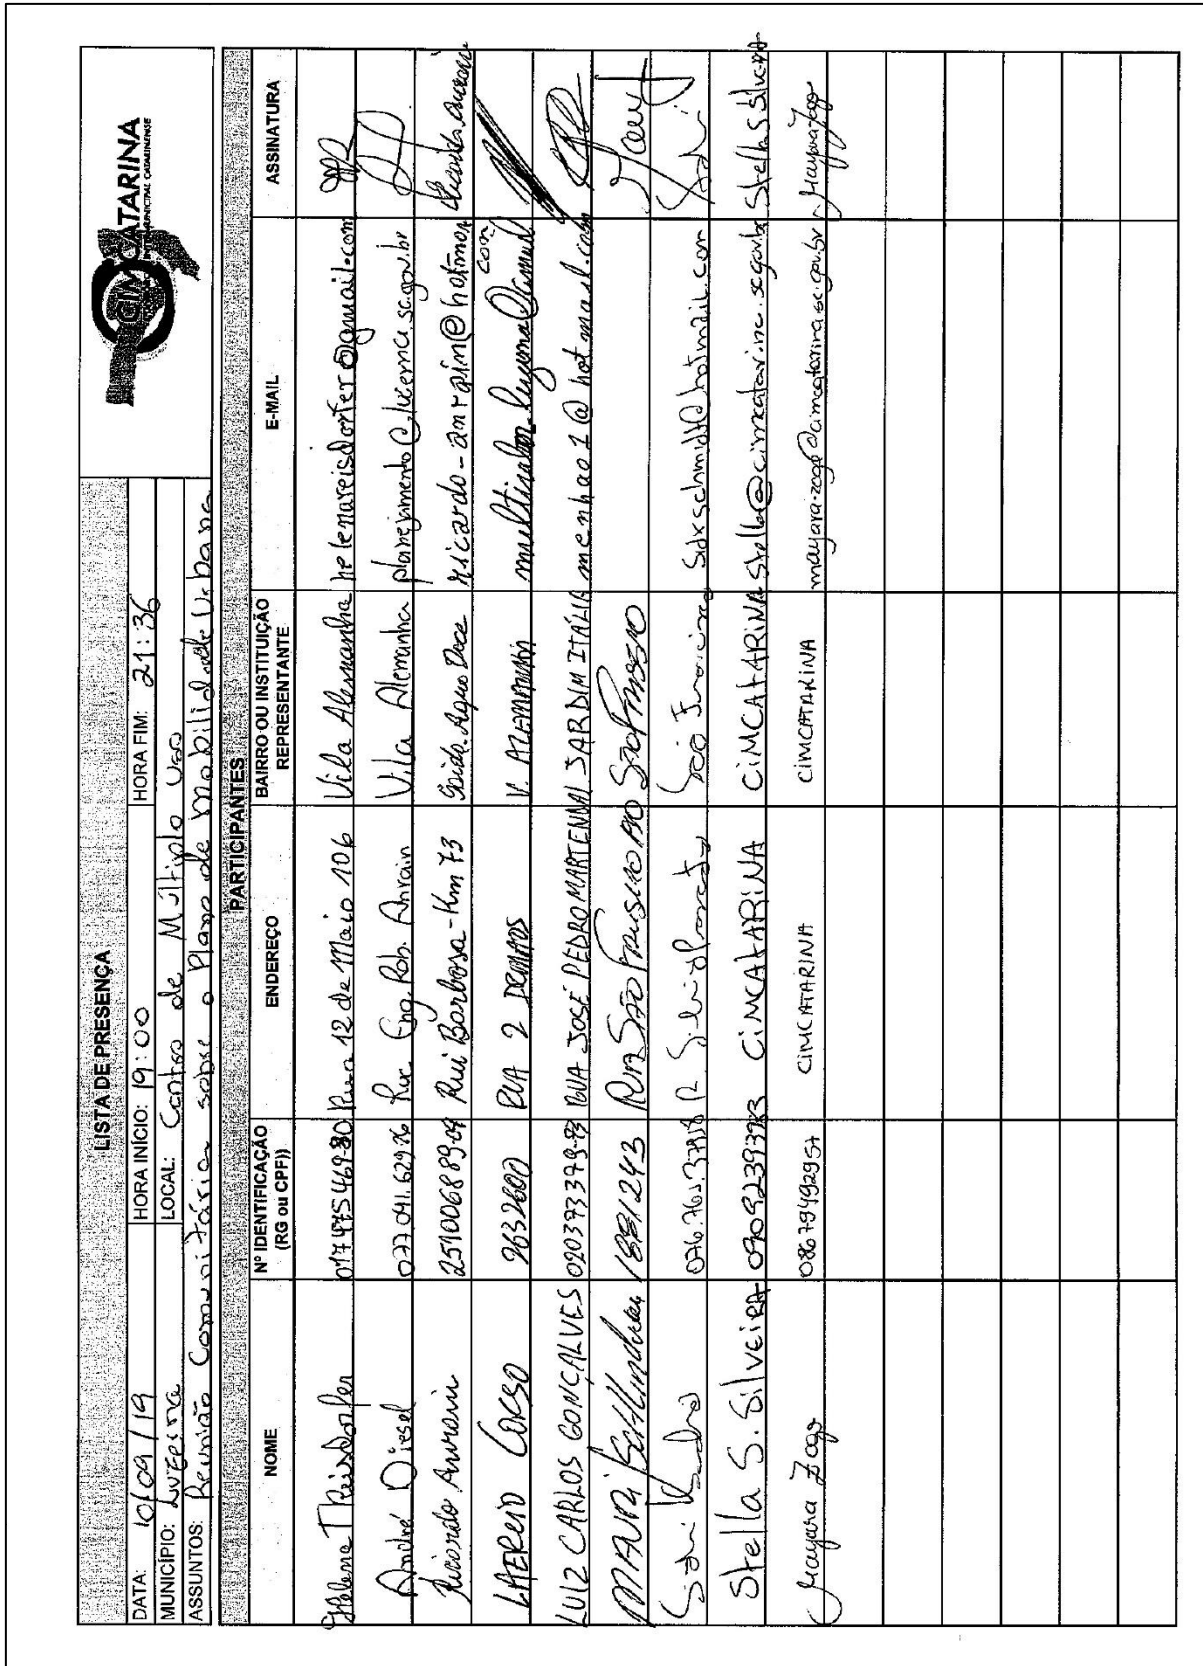 LISTA DE PRESENÇA
CIMCATARINA
DATA: 10/09/19 HORA INÍCIO: 19:00 HORA FIM: 21:36
MUNICÍPIO: Luzerna LOCAL: Centro de Múltiplo Uso
ASSUNTOS: Reunião Comunitária sobre o Plano de Mobilidade Urbana
PARTICIPANTES
NOME Nº IDENTIFICAÇÃO (RG ou CPF)) ENDEREÇO BAIRRO OU INSTITUIÇÃO REPRESENTANTE E-MAIL ASSINATURA
Helena Reisdorfer Rua 12 de Maio 106 Vila Alemanha helenareisdorfer@gmail.com
André Diesel Rua Eng. Rob. Anrain Vila Alemanha planejamento@luzerna.sc.gov.br
Ricardo Anrain Rui Barbosa-Km 73 Água Doce ricardo-anrain@hotmail
LAERCIO CORSO 9632600 RUA 2 IRMAOS V. ALEMANHA com
LUIZ CARLOS GONÇALVES RUA JOSÉ PEDRO MARTENDAL JARDIM ITÁLIA menhao1@hotmail.com
MAURI 1881243 RUA SÃO FRANCISCO SÃO FRANCISCO
São Francisco
Stella S. Silveira CiMCATARiNA CiMCATARiNA stella@cimcatarina.sc.gov.br Stella S Silveira
Mayara Zago 08679492957 CIMCATARINA CIMCATARINA mayara.zago@cimcatarina.sc.gov.br Mayara Zago